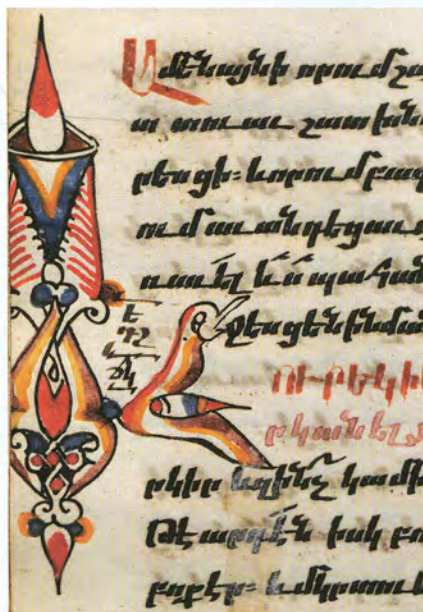 Ամենայնի որում շա
տ տուաւ շատ խն
րեսցի։ և որում բազ
ում աւանդեցաւ ա
ռաւել ևս պահան
ջեսցեն ի նման
եկի
րկանել յ
րկիր և զինչ կամի
թէ արդէն իսկ բո
րբոքէր։ և մկրտու